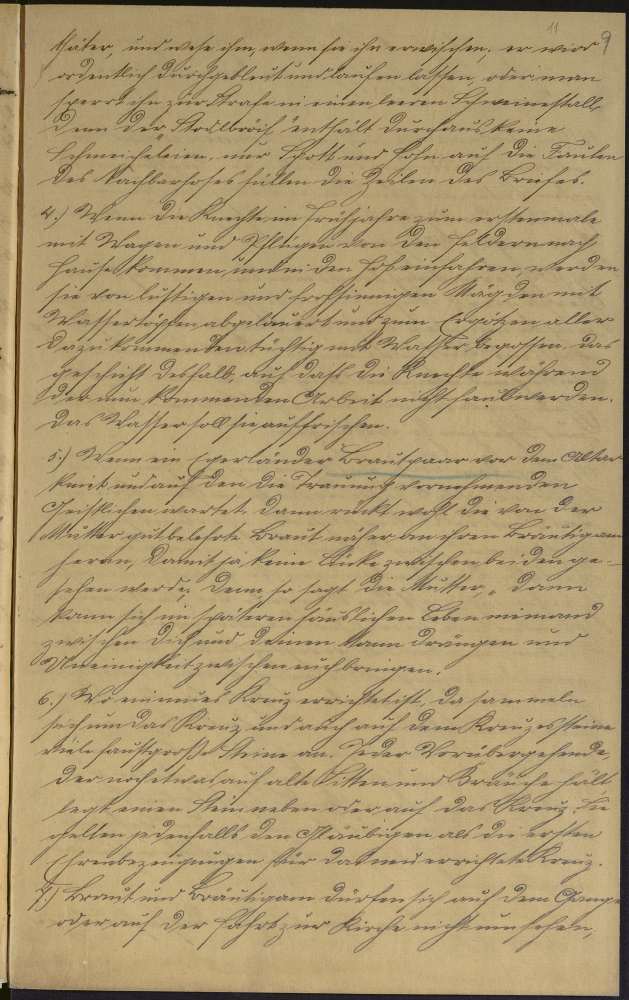 11 9
thäter, und wehe ihm, wenn sie ihn erwischen; er wird
ordentlich durchgebleut und laufen lassen, oder man
sperrt ihn zur Strafe in einen leeren Schweinestall,
denn der enthält durchaus keine
Schmeicheleien, nur Spott und Hohn auf die Faulen
des Nachbarhofes füllen die Zeilen des Briefes.
4.) Wenn die Knechte im Frühjahre zum erstenmale
mit Wagen und Pflügen von den Feldern nach
Hause kommen, und in den Hof einfahren, werden
sie von lustigen und frohsinnigen Mägden mit
Wassertöpfen abgelauert und zum Ergötzen aller
dazukommenden tüchtig mit Wasser begossen. Das
geschieht deshalb, auf daß die Knechte während
der nun kommenden Arbeit nicht faul werden.
Das Wasser soll sie auffrischen.
5.) Wenn ein Egerländer Brautpaar vor dem Altar
kniet und auf den die Trauung vornehmenden
Geistlichen wartet, dann rückt wohl die von der
Mutter gut belehrte Braut näher an ihren Bräutigam
heran, damit ja keine Lücke zwischen beiden ge-
sehen werde; denn so sagt die Mutter, „dann
kann sich im späteren häuslichen Leben niemand
zwischen Dich und Deinen Mann drängen und
Uneinigkeit zwischen euch bringen.
6.) Wo ein neues Kreuz errichtet ist, da sammeln
sich um das Kreuz und auch auf dem Kreuzessteine
viele faustgroße Steine an. Jeder Vorübergehende,
der noch etwas auf alte Sitten und Bräuche hält,
legt einen Stein neben oder auf das Kreuz. Sie
gelten jedenfalls den Gläubigen als die ersten
Ehrenbezeugungen für das neu errichtete Kreuz.
7.) Braut und Bräutigam dürfen sich auf dem Gange
oder auf der Fahrt zur Kirche nicht umsehen,